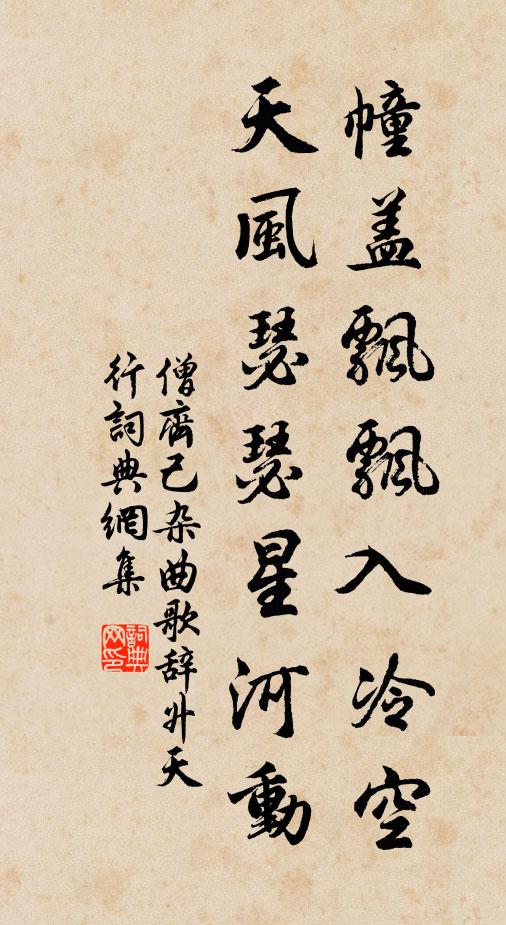 幢盖飄飄入冷空
天風瑟瑟星河動
僧齊己杂曲歌辞升天
行詞典網集
詞典
网印